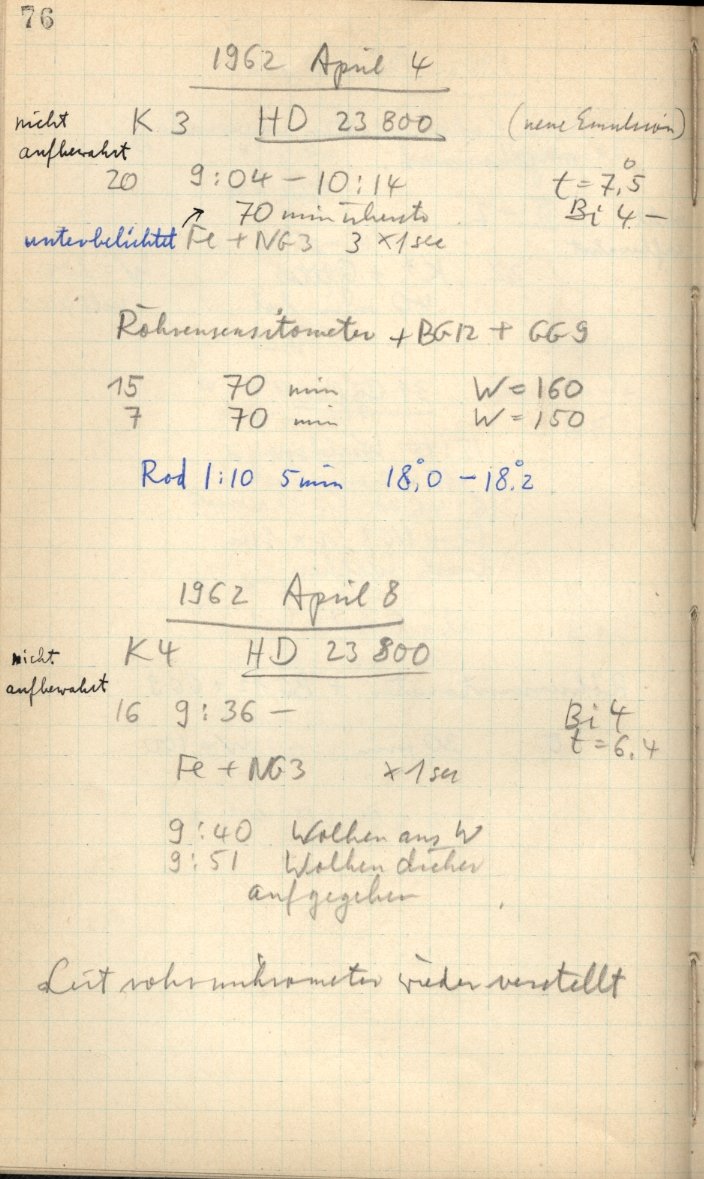 76
1962 April 4
nicht K 3 HD 23 800 (neue Emulsion)
aufbewahrt
20 9:04 – 10:14 t = 7,°5
70 min Bi 4 –
unterbelichtet ↗ Fe + NG3 3 × 1 sec
Röhrensensitometer + BG12 + GG9
15 70 min W = 160
7 70 min W = 150
Rod 1:10 5 min 18,°0 – 18,°2
1962 April 8
nicht K4 HD 23 800
aufbewahrt
16 9:36 – Bi 4
t = 6,4
Fe + NG3 × 1 sec
9:40 Wolken aus W
9:51 Wolken dicker
aufgegeben
Leitrohrmikrometer wieder verstellt